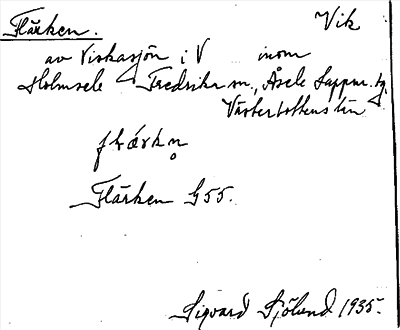 Flärken. Vik
av Viskasjön i V inom
Holmsele Fredrika sn., Åsele Lappm. tg.
Västerbottens län
flærkn̥
Flärken G55.
Sigvard Sjölund 1935.